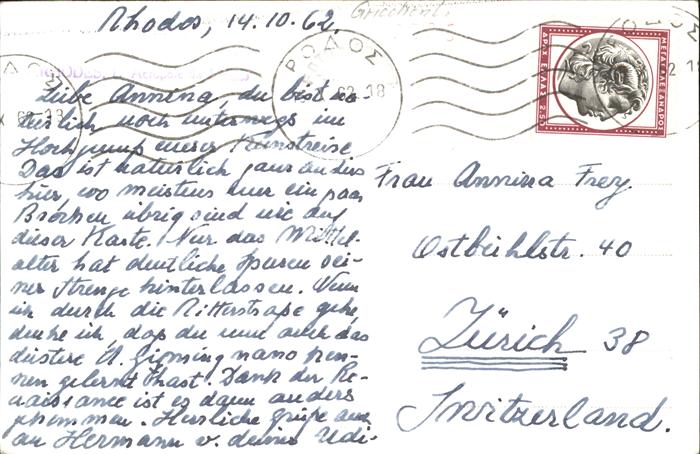 Rhodos, 14.10.62.
Griechenl.
RHODES.
ΡΟΔΟΣ
62 18
ΜΕΓΑΣ ΑΛΕΞΑΝΔΡΟΣ
ΔΡΑΧ. ΕΛΛΑΣ 250
Liebe Annina, du bist na-
türlich noch unterwegs im
Hochgenuss eurer Kunstreise
Das ist natürlich ganz anders
hier, wo meistens nur ein paar
Brocken übrig sind wie auf
dieser Karte. Nur das Mittel-
alter hat deutliche Spuren sei-
ner Strenge hinterlassen. Wenn
ich durch die Ritterstraße gehe,
denke ich, daß du nun auch das
düstere S. Gimignano ken-
nen gelernt hast. Dank der Re-
naissance ist es dann anders
gekommen. Herzliche Grüße auch
an Hermann v. deiner Udi-
Frau Annina Frey
Ostbühlstr. 40
Zürich 38
Switzerland.